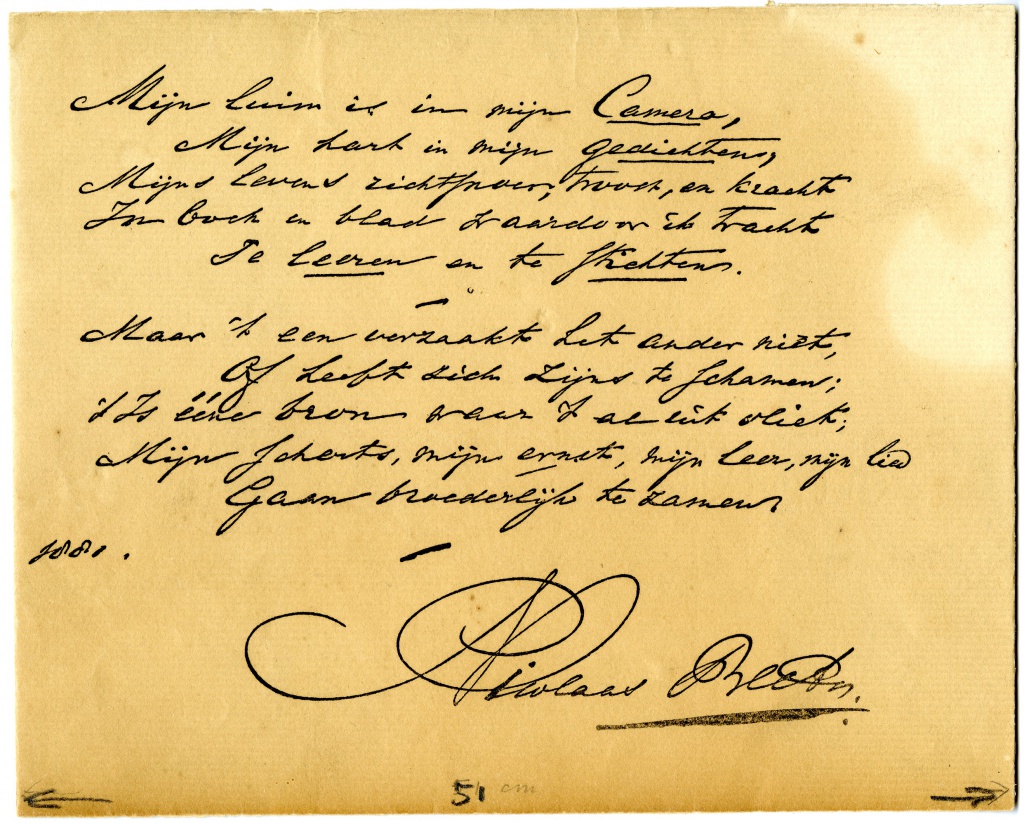 Mijn luim is in mijn Camera,
Mijn hart in mijn gedichten,
Mijns levens richtsnoer, troost, en kracht
In boek en blad waardoor ik tracht
Te leeren en te stichten.
—
Maar 't een verzaakt het ander niet,
Of heeft zich zijns te schamen;
't Is ééne bron waar 't al uit vliet;
Mijn scherts, mijn ernst, mijn leer, mijn lied
Gaan broederlijk te zamen.
1881.
—
Nikolaas Beets.
51 cm